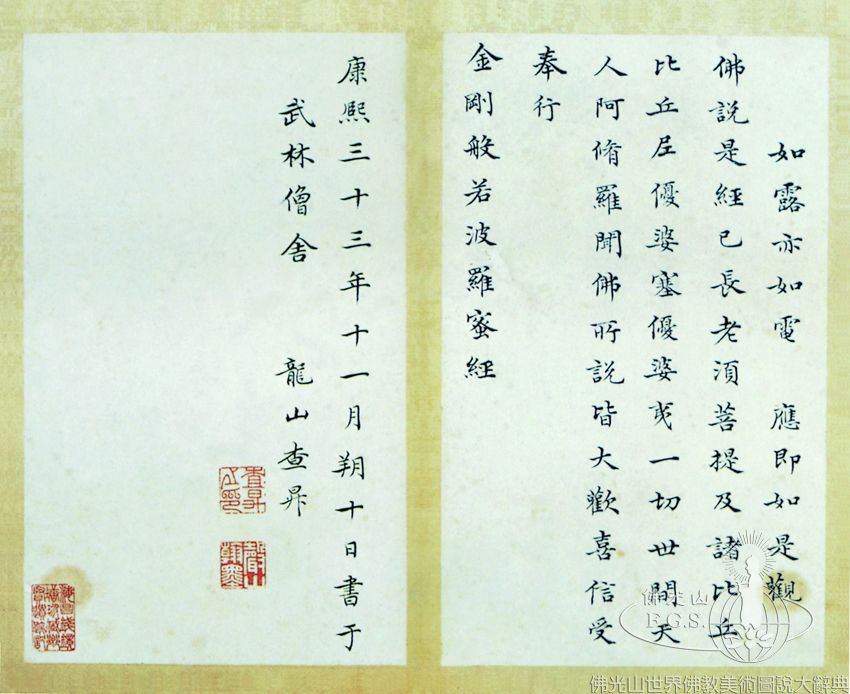 如露亦如電　應即如是觀
佛說是經已長老須菩提及諸比丘
比丘尼優婆塞優婆夷一切世間天
人阿脩羅聞佛所說皆大歡喜信受
奉行
金剛般若波羅蜜經
康熙三十三年十一月朔十日書于
武林僧舍　龍山查昇
查昇之印
佛光山
F.G.S.
佛光山世界佛教美術圖說大辭典